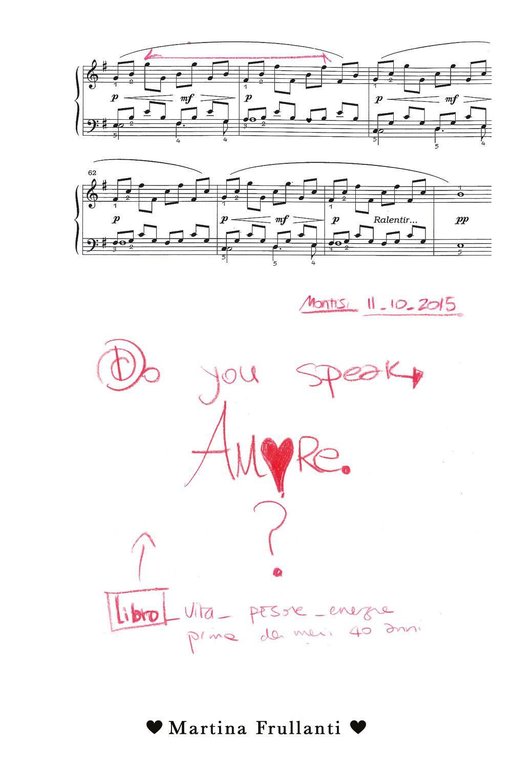 p mf p p mf
62
p p mf p Ralentir... pp
Montisi 11-10-2015
Do you speak
AMORe.
?
Libro Vita - persone - energie
prima dei miei 40 anni
♥ Martina Frullanti ♥